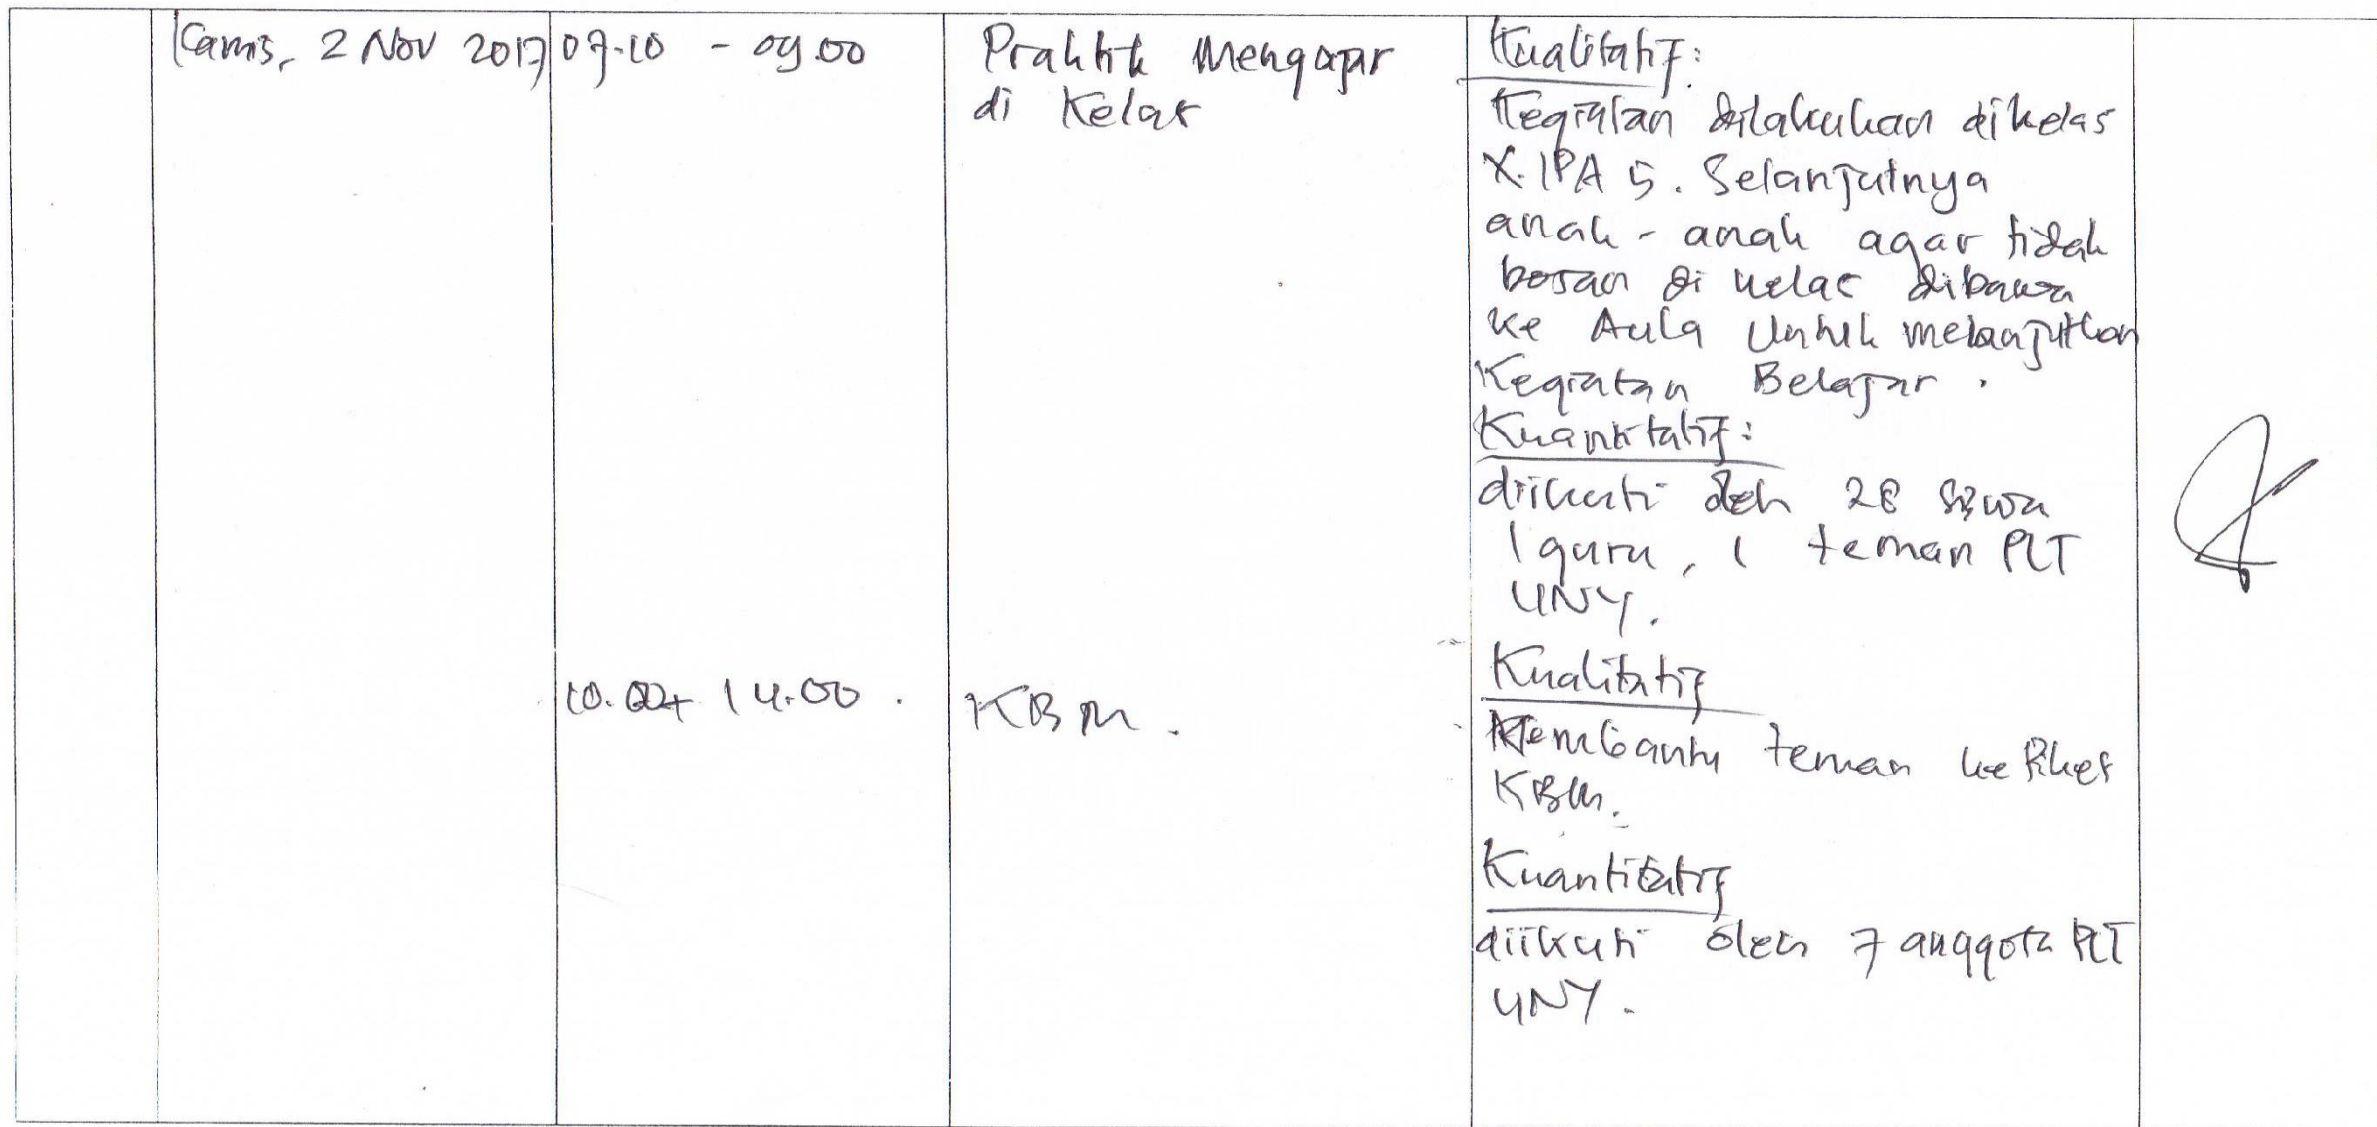 Kamis, 2 Nov 2017 07.10 - 09.00 Praktik Mengajar
di Kelas
Kualitatif:
Kegiatan dilakukan dikelas
X. IPA 5. Selanjutnya
anak - anak agar tidak
bosan di kelas dibawa
ke Aula Untuk melanjutkan
Kegiatan Belajar.
Kuantitatif:
diikuti oleh 28 siswa
1 guru, 1 teman PLT
UNY.
10.00 14.00. KBM.
Kualitatif
Membantu teman ke Piket
KBM.
Kuantitatif
diikuti oleh 7 anggota PLT
UNY.